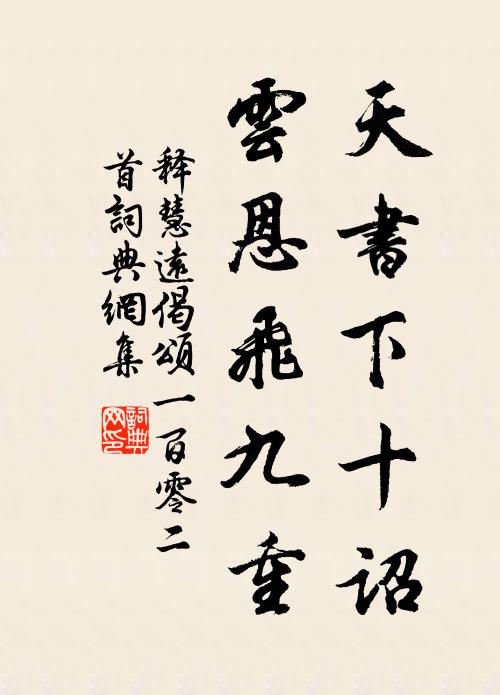 天書下十詔
雲恩飛九重
釋慧遠偈頌一百零二
首詞典網集
詞典网印